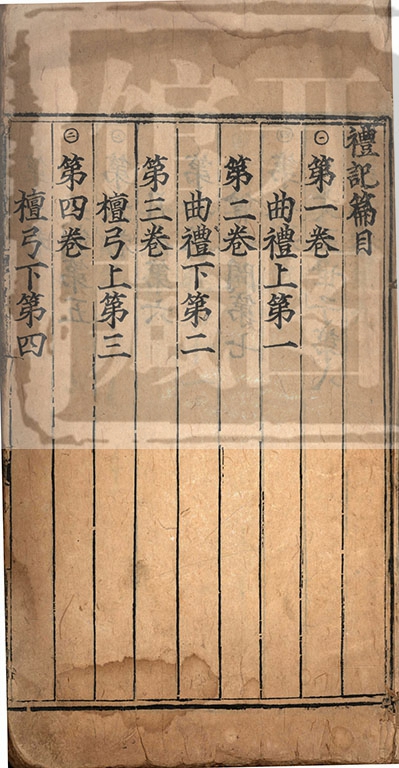 禮記篇目
㊀ 第一卷
曲禮上第一
第二卷
曲禮下第二
第三卷
檀弓上第三
㊁ 第四卷
檀弓下第四